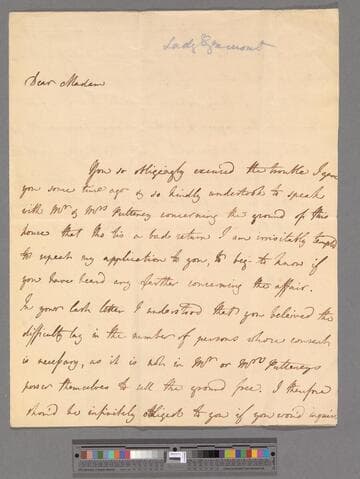 Lady Egremont
Dear Madam
You so obligingly excused the trouble I gave
you some time ago & so kindly undertook to speak
with Mr. & Mrs. Pulteney concerning the ground of this
house that tho' tis a bad return I am irresistably tempted
to repeat my application to you, to beg to know if
you have heard any further concerning the affair.
In your last letter I understood that you believed the
difficulty lay in the number of persons whose consent
is necessary, as it is not in Mr. or Mrs. Pulteneys
power themselves to sell the ground free. I therefore
should be infinitely obliged to you if you would inquire